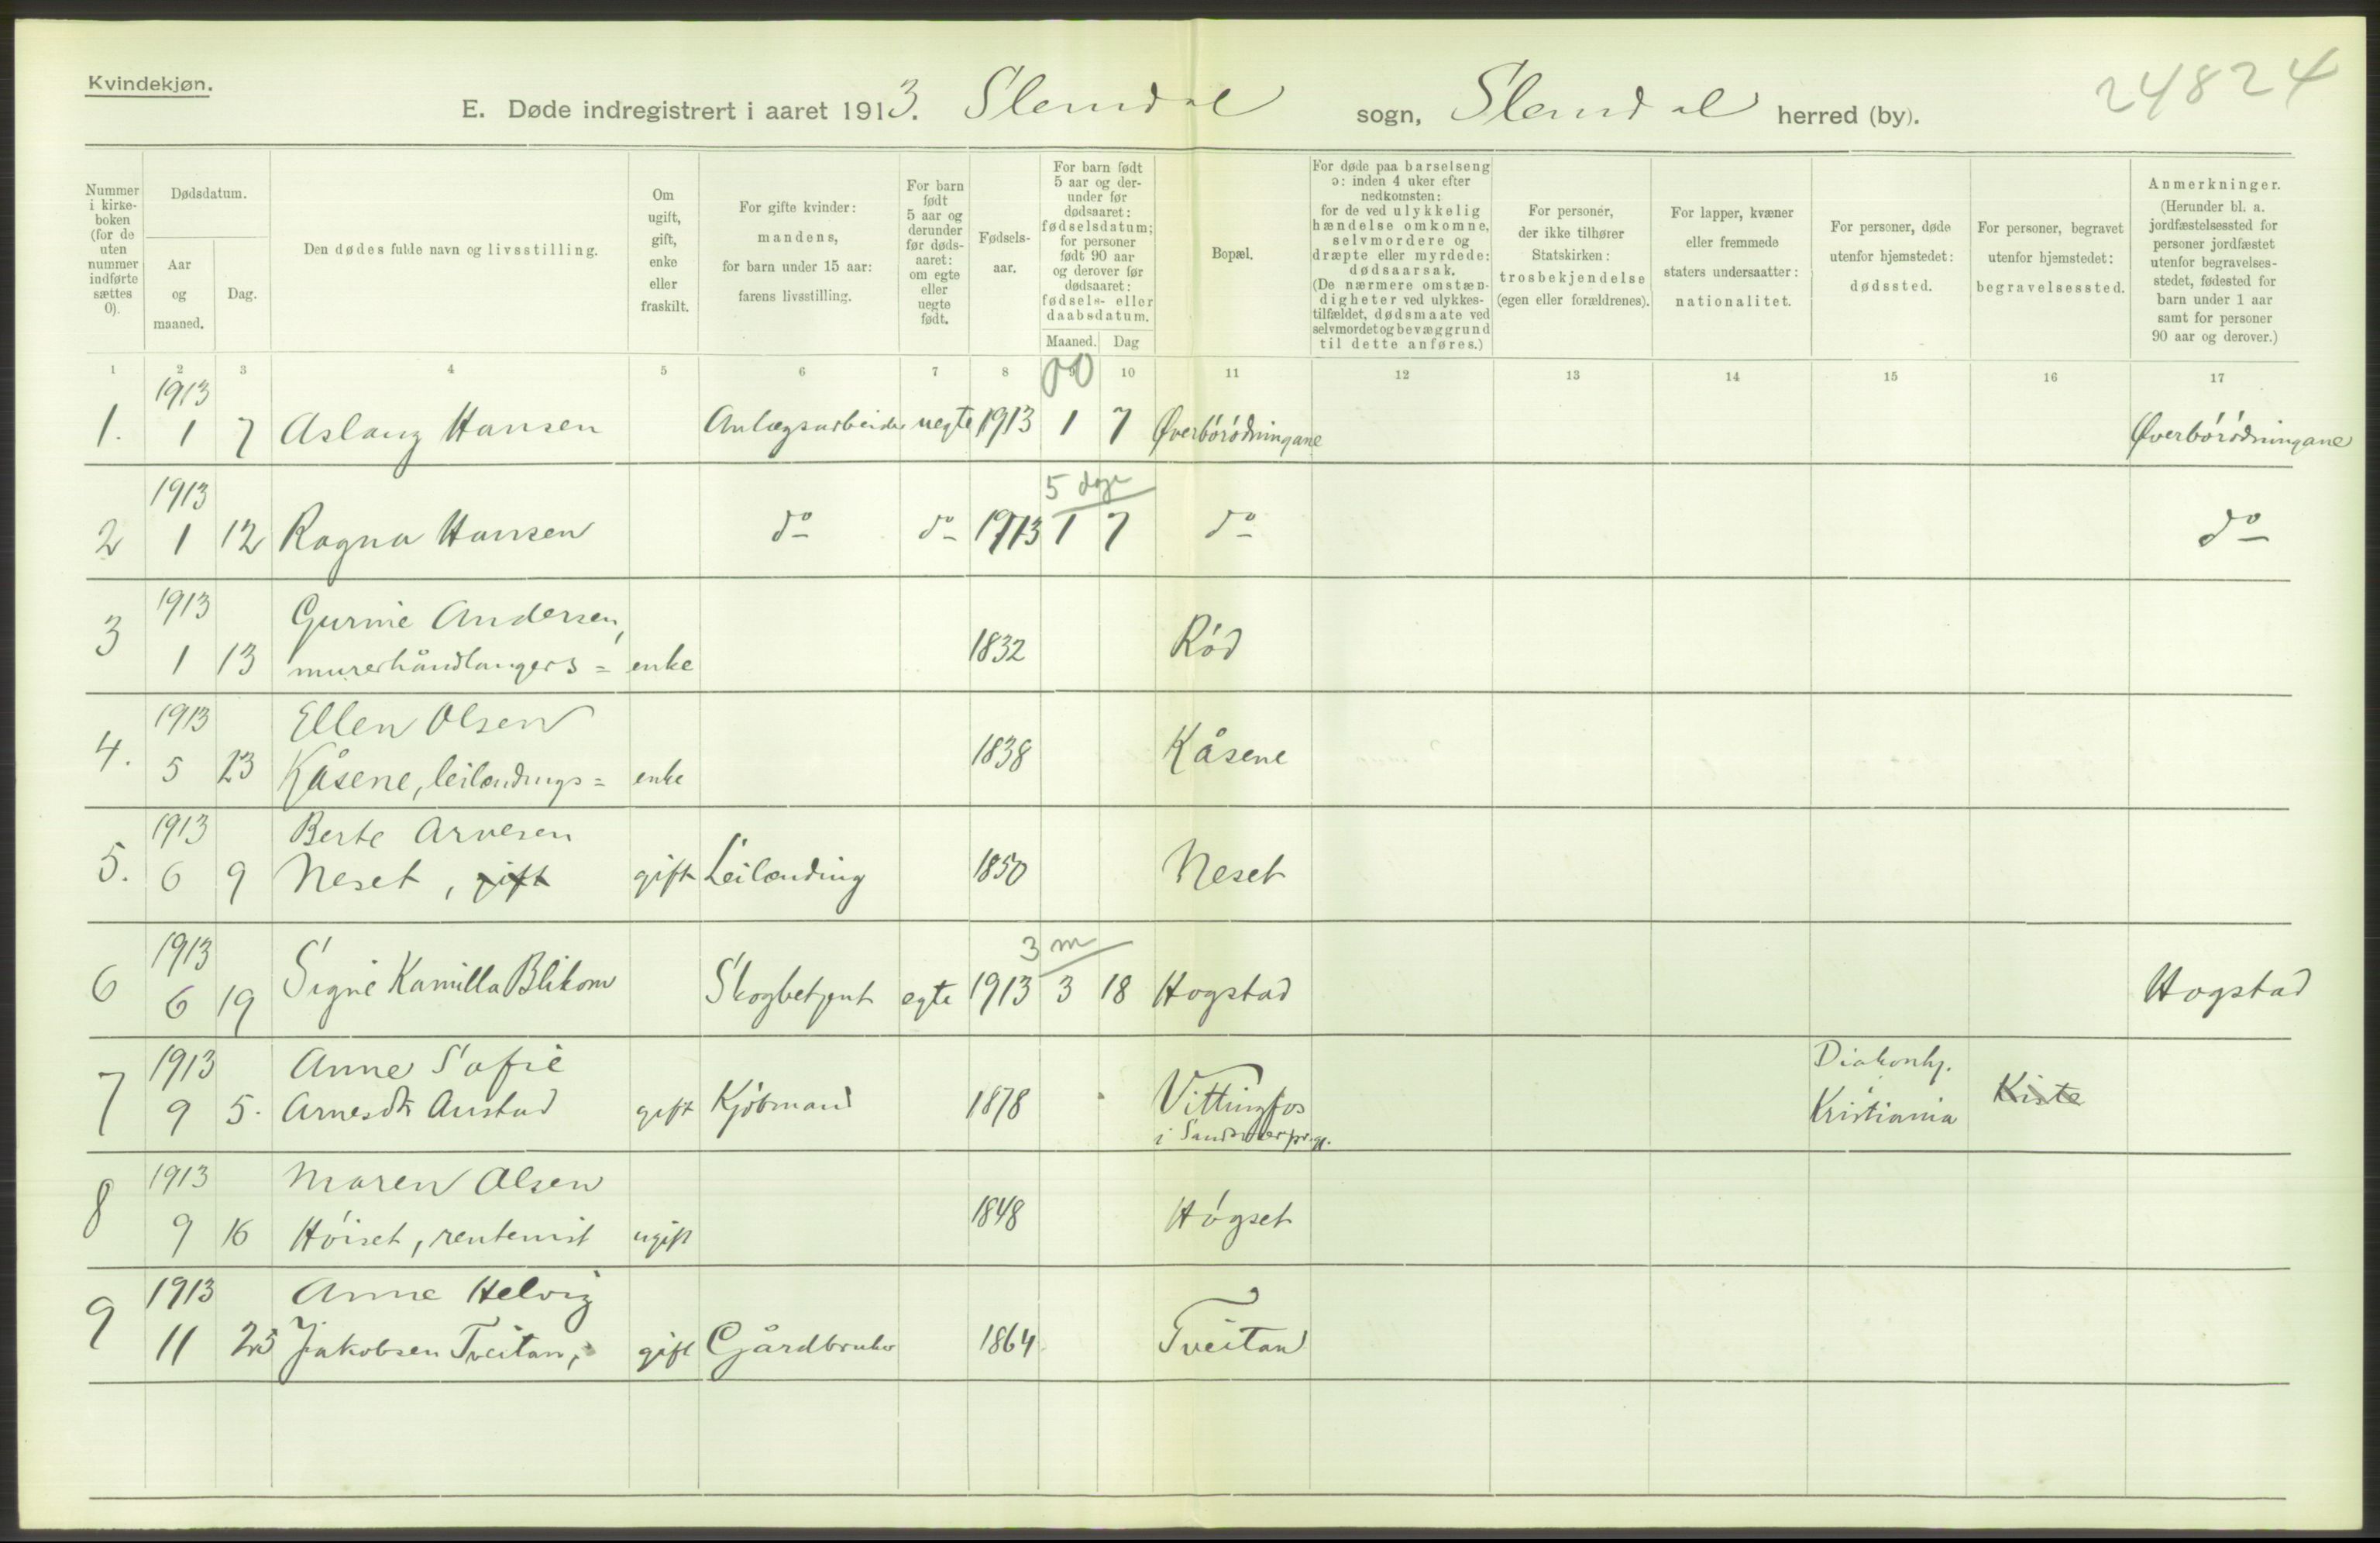 Kvindekjøn.
24824
E. Døde indregistrert i aaret 1913. Slemdal sogn, Slemdal herred (by).
Nummer i kirke-boken (for de uten nummer indførte sættes 0).
Dødsdatum.
Aar og maaned.
Dag.
Den dødes fulde navn og livsstilling.
Om ugift, gift, enke eller fraskilt.
For gifte kvinder: mandens, for barn under 15 aar: farens livsstilling.
For barn født 5 aar og derunder før døds-aaret: om egte eller uegte født.
Fødsels-aar.
For barn født 5 aar og der-under før dødsaaret: fødselsdatum; for personer født 90 aar og derover før dødsaaret: fødsels- eller daabsdatum.
Maaned. Dag
Bopæl.
For døde paa barselseng ɔ: inden 4 uker efter nedkomsten: for de ved ulykkelig hændelse omkomne, selvmordere og dræpte eller myrdede: dødsaarsak. (De nærmere omstæn-digheter ved ulykkes-tilfældet, dødsmaate ved selvmordet og bevæggrund til dette anføres.)
For personer, der ikke tilhører Statskirken: trosbekjendelse (egen eller forældrenes).
For lapper, kvæner eller fremmede staters undersaatter: nationalitet.
For personer, døde utenfor hjemstedet: dødssted.
For personer, begravet utenfor hjemstedet: begravelsessted.
Anmerkninger. (Herunder bl. a. jordfæstelsessted for personer jordfæstet utenfor begravelses-stedet, fødested for barn under 1 aar samt for personer 90 aar og derover.)
1 2 3 4 5 6 7 8 9 10 11 12 13 14 15 16 17
00
1913
1. 1 7 Aslaug Hansen Anlægsarbeider uegte 1913 1 7 Øverbörödningane Øverbörödningane
1913 5 dage
2 1 12 Ragna Hansen do do 1913 1 7 do do
1913 Gurine Andersen,
3 1 13 murerhåndlangers = enke 1832 Rød
1913 Ellen Olsen
4. 5 23 Kåsene, leilændings = enke 1838 Kåsene
1913 Berte Arnesen
5. 6 9 Neset, gift gift Leilænding 1850 Neset
1913 3 m
6 6 19 Signe Kamilla Blikom Skogbetjent egte 1913 3 18 Hogstad Hogstad
1913 Anne Sofie Diakonhj.
7 9 5. Arnesdtr Anstad gift Kjöbmand 1878 Vittingfos Kristiania Kiste
i Sandsværprgj.
1913 Maren Olsen
8 9 16 Höiset, rentenist ugift 1848 Högset
1913 Anne Helvig
9 11 25 Jakobsen Tveitan, gift Gårdbruker 1864 Tveitan